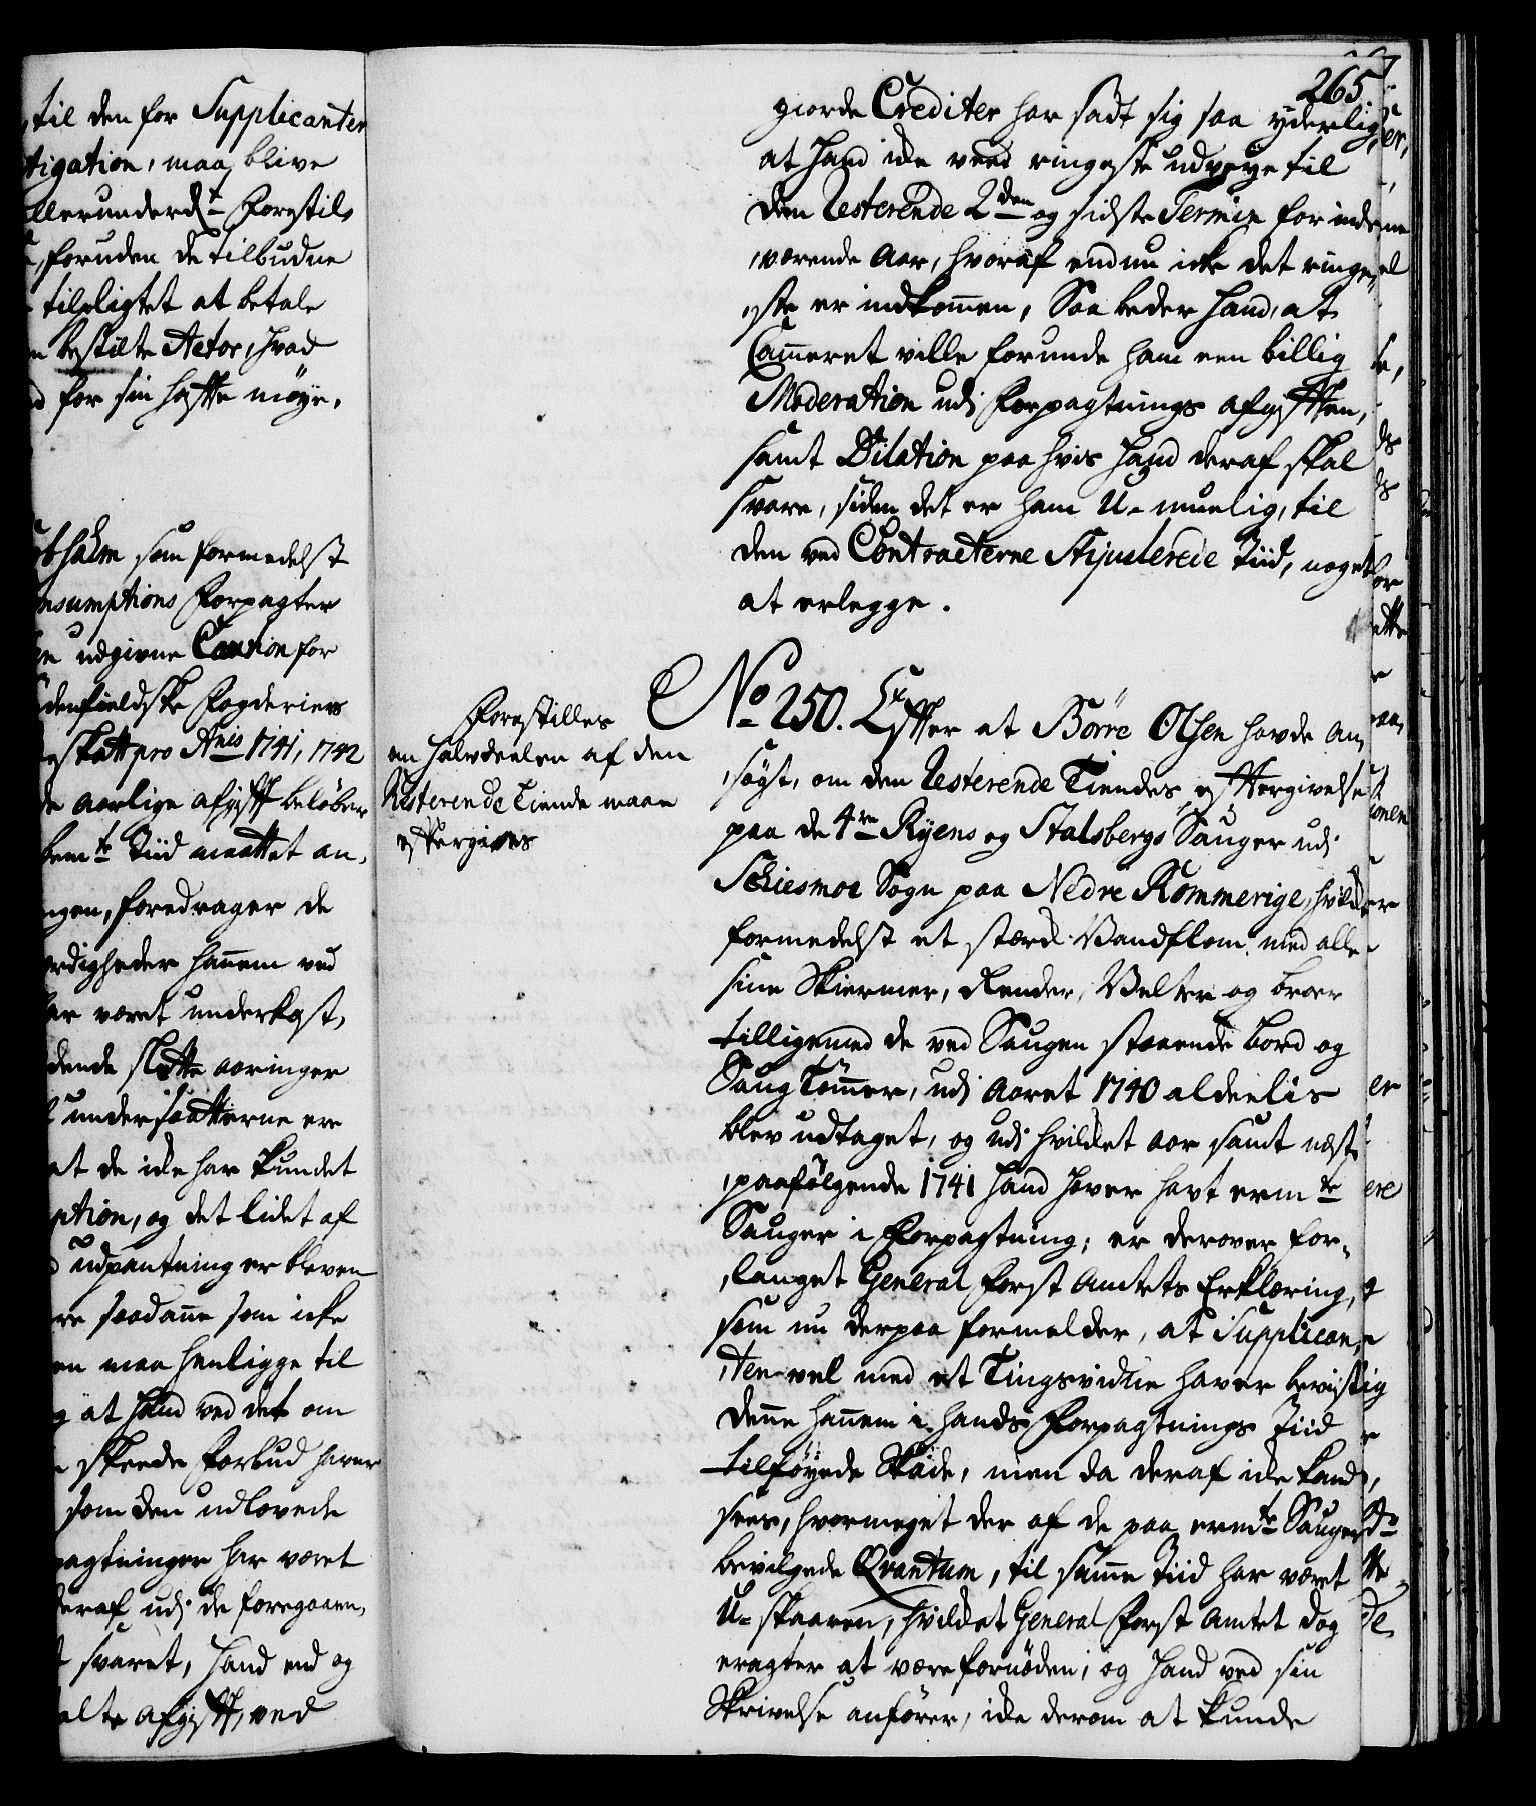 til den for Supplicanten
tigation, maa blive
llerunderdt Forestil,
foruden de tilbudne
tilpligtet at betale
n bestilte Actor, hvad
d for sin hafte möye.
obsalm som formedelst
nsumptions Forpagter
en udgivne Caution for
denfieldske Fogderiers
eskatt pro Anis 1741, 1742
de aarlige afgifft beløber
bemte Tiid maattet an,
ngen, foredrager de
rdigheder hannem ved
er været underkast,
dende slette aaringer
undersaatterne ere
at de icke har kundet
ption, og det lidet af
udpantning er bleven
re saadanne som icke
en maa henligge til
g at hand ved det om
skeede Forbud haver
som den udlovede
pagtninger har været
deraf udj de foregaaen,
svaret, hand end og
alte afgifft, ved
265
giorde Crediter har sadt sig saa yderlig,
at hand icke veed ringeste udveye til
den Resterende 2den og sidste Termin for inde
,værende Aar, hvoraf endnu icke det ringe,
,ste er indkommen, Saa beder hand, at
Cammeret ville forunde ham een billig
Moderation udj Forpagtnings afgifften,
samt Dilation paa hvis hand deraf skal
svare, siden det er ham U-muelig, til
den ved Contracterne Stipulerede Tiid, noget
at erlegge.
Forestilles
en halvdeelen af den
Resterende Tiende maae
eftergives
No 250. Effter at Börre Olsen havde An,
,søgt, om den Resterende Tiendes efftergivelse
paa de 4re Ryens og Stalsbergs Sauger udj
Schiesmoe Sogn paa Nedre Rommerige, hvilcke
formedelst et stærck Vandflom, med alle
sine Skiermer, Render, Velter og broer
tilligemed de ved Saugen staaende bord og
Saug Tømmer, udj Aaret 1740 aldeelis
blev udtaget, og udj hvilcket aar samt næst
,paafølgende 1741 hand haver havt ermte
Sauger i Forpagtning; er derover for-
,langet General Forst Amtets Erklæring,
som nu derpaa formelder, at Supplican,
,ten vel med et Tingsvidne haver beviist
denne hannem i hands Forpagtnings Tiid
tilføyede Skade, men da deraf icke kand
sees, hvormeget der af de paa ermte Sauger
bevilgede Qvantum, til samme Tiid har været
U-skaaren, hvilcket General Forst Amtet dog
eragter at være fornøden, og hand ved sin
Skrivelse anfører, icke derom at kunde